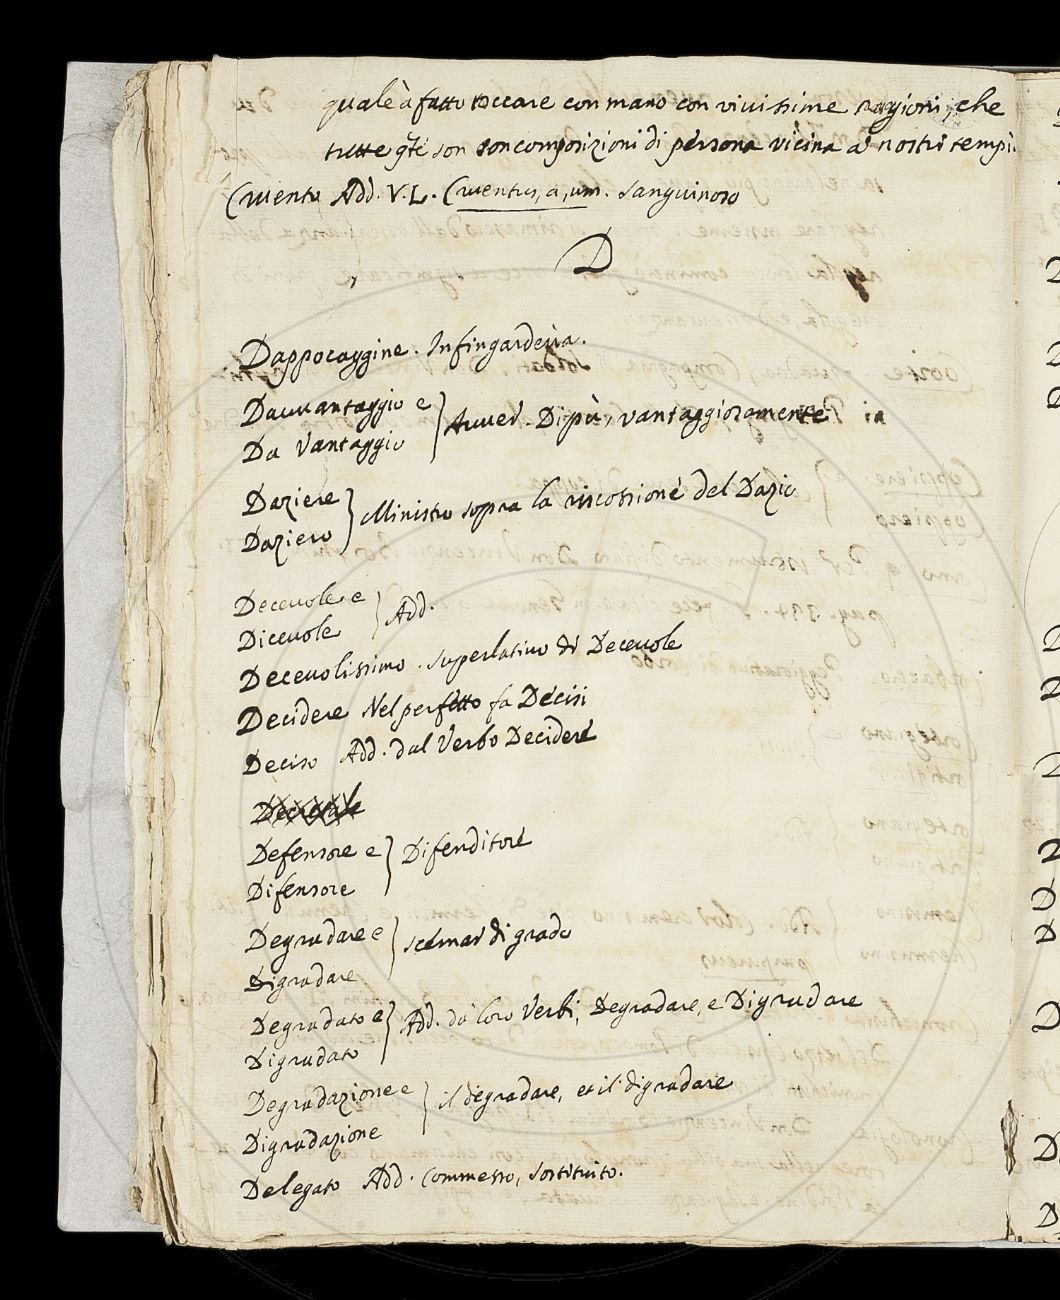 quale à fatto toccare con mano con vivissime ragioni, che
tutte q.te son son composizioni di persona vicina a' nostri tempi.
Cruento Add. V. L. Cruentus, a, um. Sanguinoso
D
Dappocaggine. Infingarderia.
Davvantaggio e
Da vantaggio } Avver. Di più, vantaggiosamente
Daziere
Daziero } Ministro sopra la riscossione del Dazio
Decevole e
Dicevole } Add.
Decevolissimo. Superlativo di Decevole
Decidere Nel perfetto fa Decisi
Deciso Add. dal Verbo Decidere
Decretale
Defensore e
Difensore } Difenditore
Degradare e
Digradare } scemar di grado
Degradato e
Digradato } Add. da loro Verbi, Degradare, e Digradare
Degradazione e
Digradazione } il degradare, et il digradare
Delegato Add. Commesso, Sostituito.